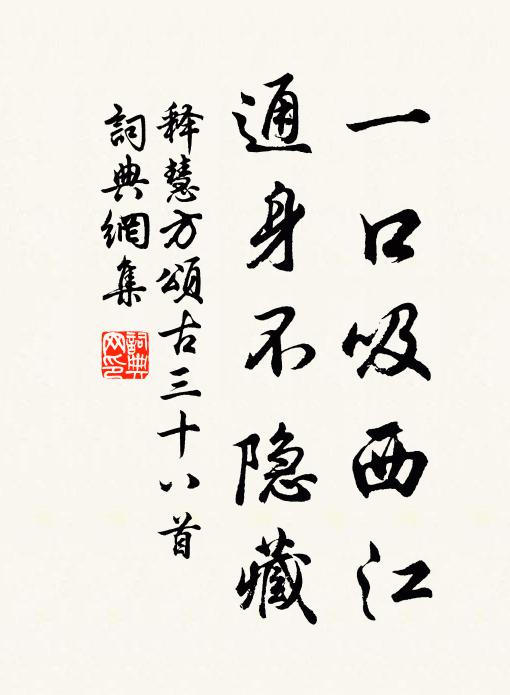 一口吸西江
通身不隐藏
释慧方頌古三十八首
詞典網集
詞典網印